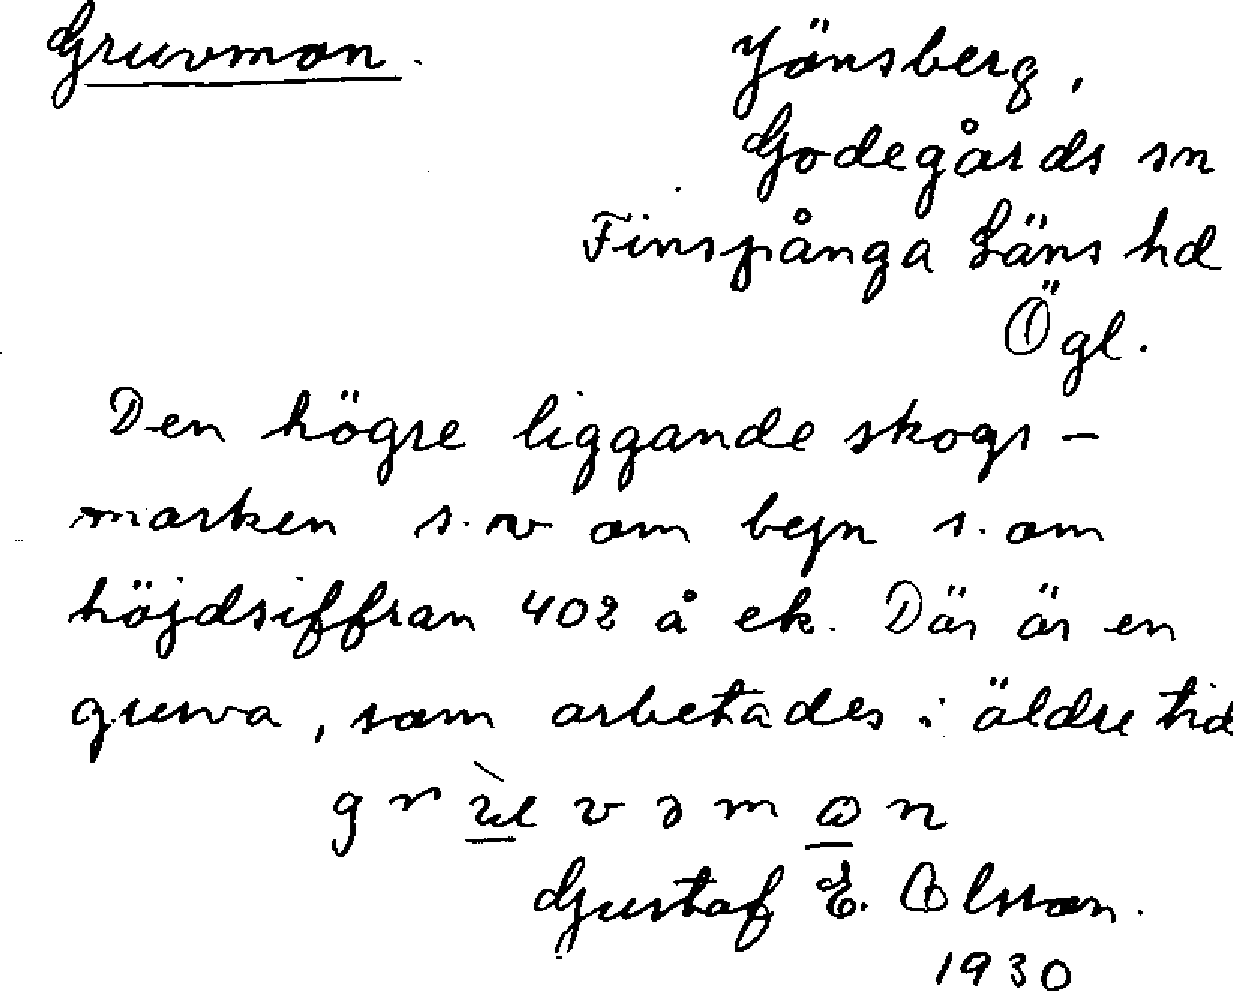 Gruvmon.
Jönsberg,
Godegårds sn
Finspånga Läns hd
Ögl.
Den högre liggande skogs-
marken s.v om bejn s. om
höjdsiffran 402 å ek. Där är en
gruva, som arbetades i äldre tid
Gustaf E. Olsson.
1930